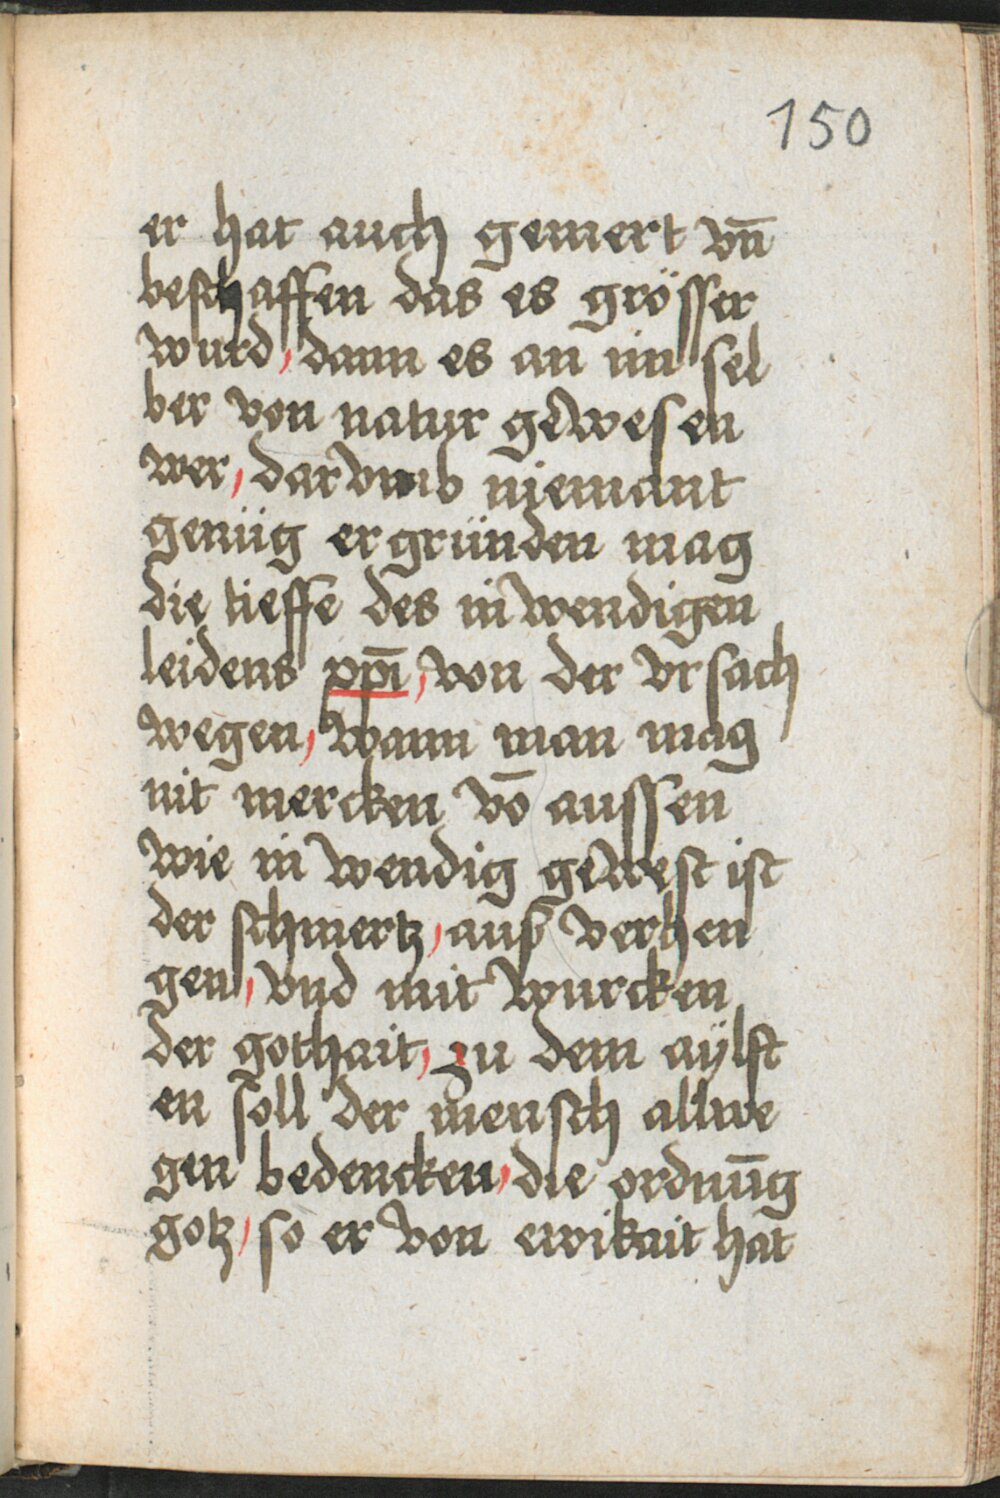 150
er hat auch gemert vn̄
beschaffen das es grösser
wurd, dann es an im sel
ber von natur gewesen
wer, darvmb niemant
genüg ergründen mag
die tieffe des inwendigen
leidens xp̄i, von der vrsach
wegen, wann man mag
nit mercken vō aussen
wie inwendig gewest ist
der schmertz, auß verhen
gen, vnd mit wurcken
der gothait, zu dem aÿlft
en soll der mensch allwe
gen bedencken, die ordnūg
gotz, so er von ewikait hat